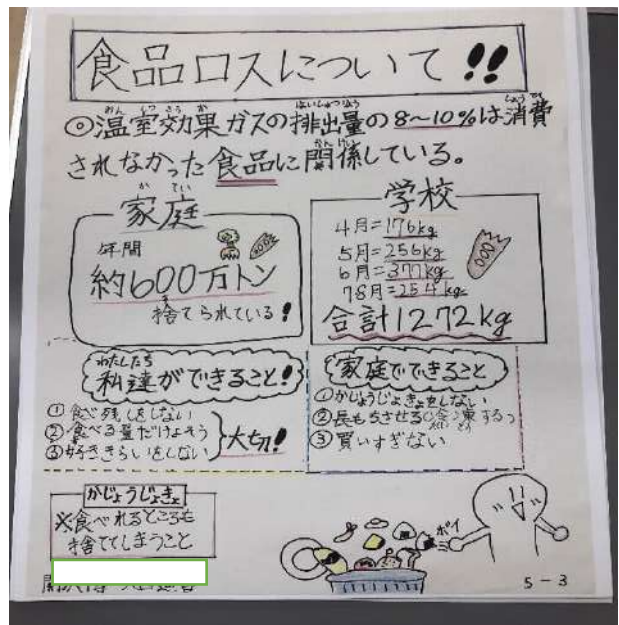 食品ロスについて!!
◎温室効果ガスの排出量の8～10%は消費
されなかった食品に関係している。
家庭
年間
約600万トン
捨てられている!
学校
4月=176kg
5月=256kg
6月=377kg
78月=254kg
合計1272kg
私達ができること!
①食べ残しをしない
②食べる量だけよそう
③好ききらいをしない
大切!
家庭でできること
①かじょうじょきょをしない
②長もちさせる(冷凍する)
③買いすぎない
かじょうじょきょ
※食べれるところも
捨ててしまうこと
ポイ
5-3